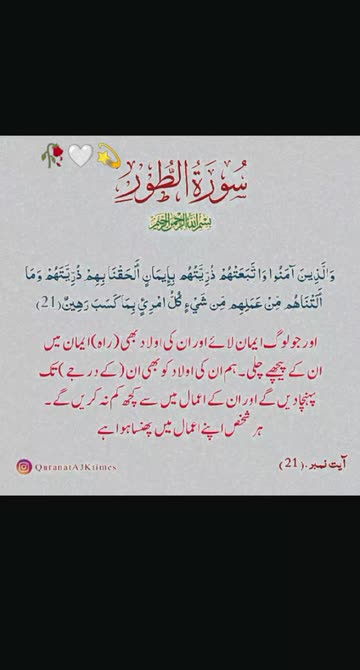 سُوۡرَةُ الطُّوۡر
بسم الله الرحمن الرحيم
وَالَّذِينَ آمَنُوا وَاتَّبَعَتْهُمْ ذُرِّيَّتُهُم بِإِيمَانٍ أَلْحَقْنَا بِهِمْ ذُرِّيَّتَهُمْ وَمَا
أَلَتْنَاهُم مِّنْ عَمَلِهِم مِّن شَيْءٍ كُلُّ امْرِئٍ بِمَا كَسَبَ رَهِينٌ(21)
اور جو لوگ ایمان لائے اور ان کی اولاد بھی (راہ) ایمان میں
ان کے پیچھے چلی۔ ہم ان کی اولاد کو بھی ان (کے درجے) تک
پہنچادیں گے اور ان کے اعمال میں سے کچھ کم نہ کریں گے۔
ہر شخص اپنے اعمال میں پھنسا ہوا ہے
آیت نمبر.(21)
QuranatAJKtimes